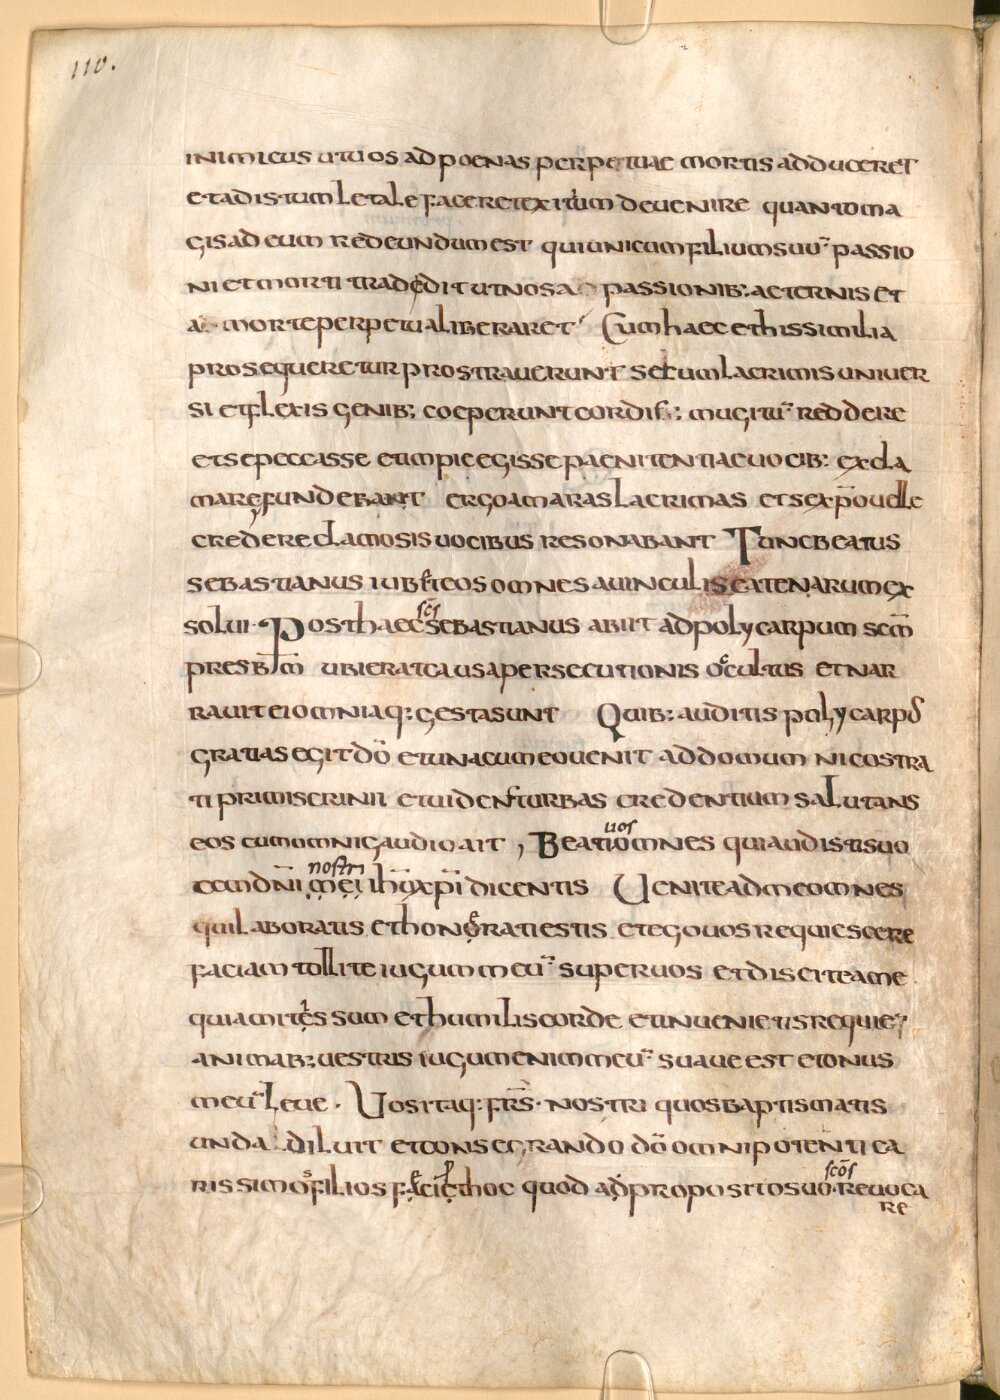 110.
inimicus ut uos ad poenas perpetuae mortis adduceret
et ad istum letale faceret exitum deuenire quanto ma
gis ad eum redeundum est qui unicum filium suū passio
ni et morti tradedit ut nos a passionib: aeternis et
a morte perpetua liberaret Cum haec et his similia
prosequeretur prostrauerunt se cum lacrimis uniuer
si et flexis genib; coeperunt cordis: mugitū reddere
et se peccasse et impie egisse paenitentiae uocib: excla
mare fundebant ergo amaras lacrimas et se xp̄o uelle
credere clamosis uocibus resonabant Tunc beatus
sebastianus iubet eos omnes a uinculis catenarum ex
solui. Post haec scs̄ sebastianus abiit ad polycarpum scm̄
presbm̄ ubi erat causa persecutionis occultus et nar
rauit ei omnia q: gesta sunt Quib: auditis polycarpus
gratias egit dō et una cum eo uenit ad domum nicostra
ti primiscrinii et uidens turbas credentium salutans
eos cum omni gaudio ait , Beati uos omnes qui audistis uo
cem dn̄i mei nostri ihū xp̄i dicentis Uenite ad me omnes
qui laboratis et honerati estis et ego uos requiescere
faciam tollite iugum meū super uos et discite a me
quia mitis sum et humilis corde et inuenietis requie
animab: uestris iugum enim meū suaue est et onus
meū leue . Uos itaq: frs̄ . nostri quos baptismatis
unda diluit et consecrando dō omnipotenti ca
rissimos filios faciet hoc quod ad proposito suo scōs reuoca
re